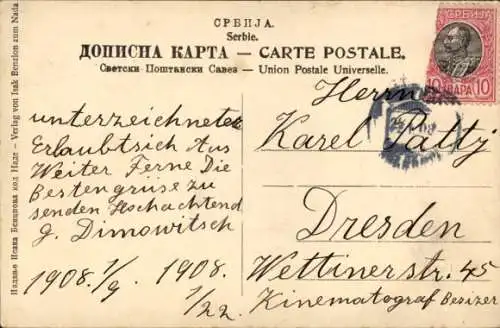 СРБИЈА.
Serbie.
ДОПИСНА КАРТА — CARTE POSTALE.
Светски Поштански Савез – Union Postale Universelle.
СРБИЈА
10 ПАРА 10
Издање Исака Бенциона код Наде - Verlag von Isak Benzion zum Nada
unterzeichneter
Erlaubtsich Aus
Weiter Ferne Die
Bestengrüse zu
senden Hochachtend
g. Dimowitsch
1908. 1/9. 1908.
1/22.
Herrn
Karel Patty
Dresden
Wettinerstr. 45
Kinematograf Besizer